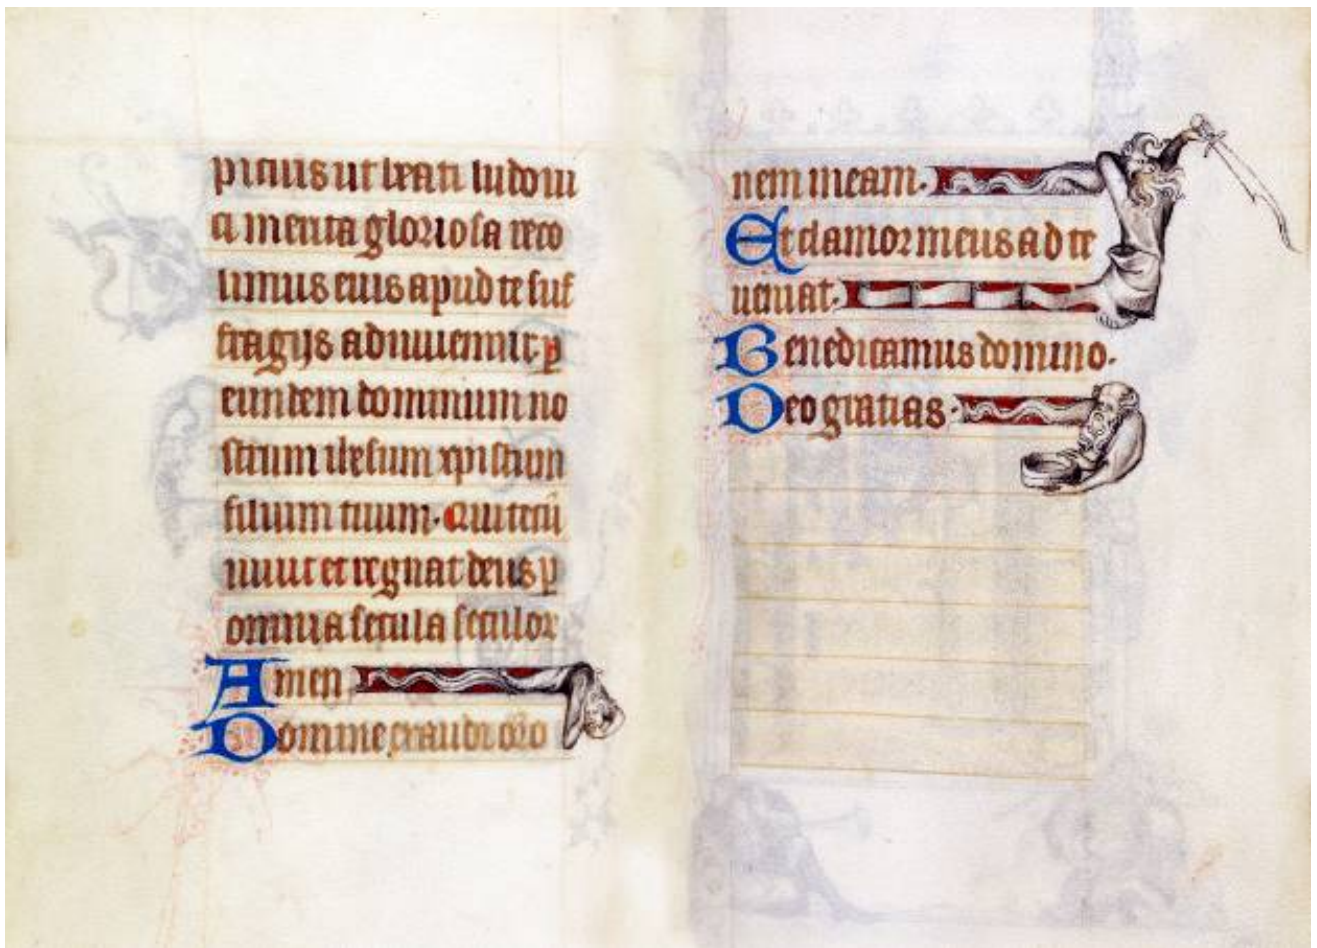 picius ut beati ludoui
ci merita gloriosa reco
limus eius apud te suf
fragijs adiuuemur. ꝑ
eundem dominum no
strum ihesum xpistum
filium tuum. Qui tecū
uiuit et regnat deus ꝑ
omnia secula seculor
Amen
Domine exaudi oro
nem meam.
Et clamor meus ad te
ueniat.
Benedicamus domino.
Deo gratias.